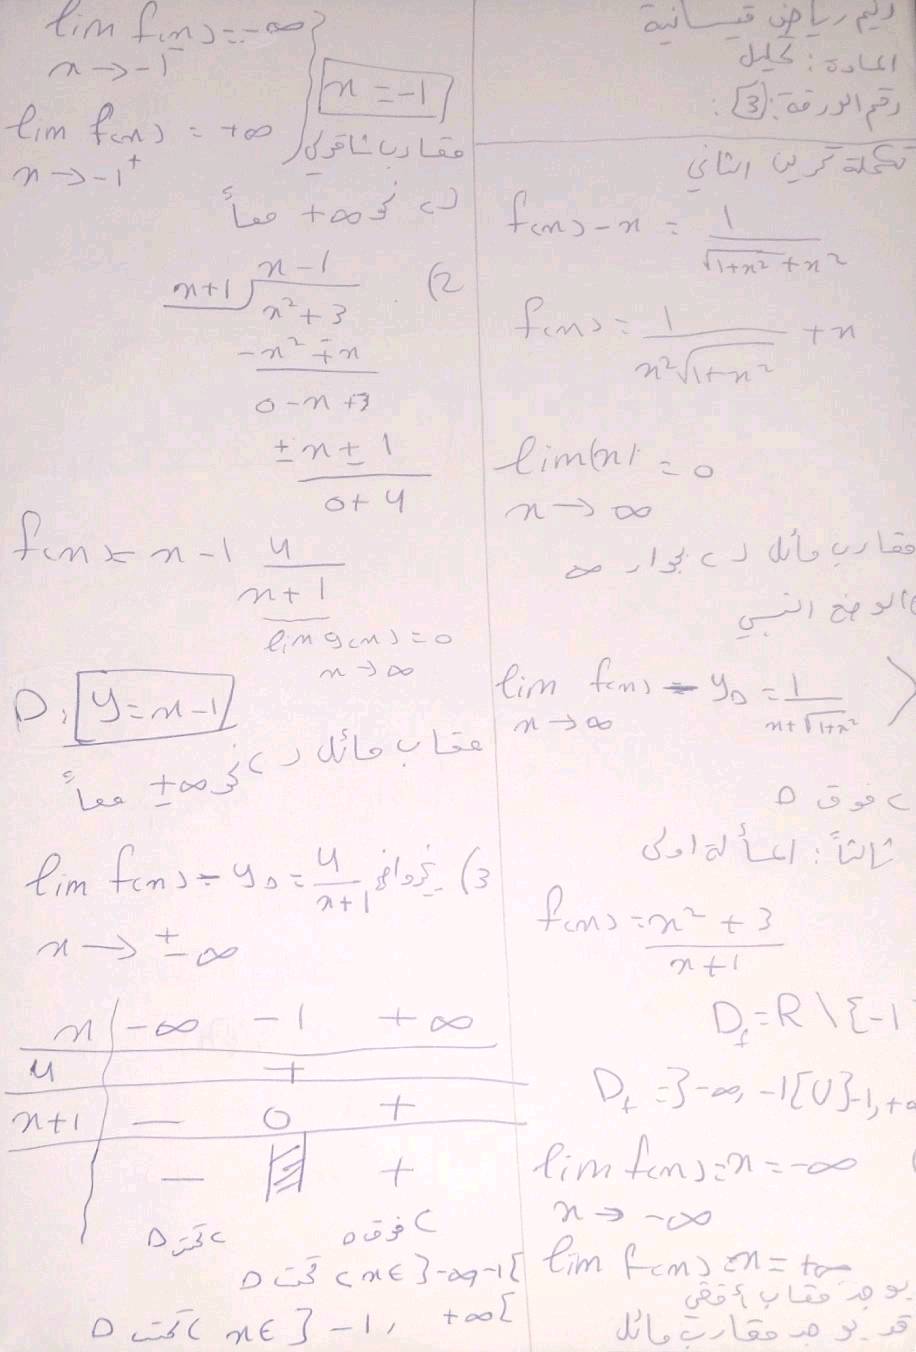 ريم رياض قيسانية
المادة: تحليل
رقم الورقة: 3:
تكملة تمرين الثاني
f(x) - x = 1 / √1+x² + x²
f(x) = 1 / x²√1+x² + x
lim(x) = 0
x → ∞
مقارب مائل لـ c بجوار ∞
الوضع النسبي
lim f(x) - y_D = 1 / x+√1+x² >
x → ∞
c فوق D
ثالثاً: المسألة اولى
f(x) = x² + 3 / x+1
D_f = R \ {-1
D_f = ]-∞, -1[ U ]-1, +∞
lim f(x) = x = -∞
x → -∞
lim f(x) = x = +∞
يوجد مقارب أفقي
قد يوجد مقارب مائل
lim f(x) = -∞
x → -1⁻
lim f(x) = +∞
x → -1⁺
x = -1
مقارب شاقولي
لـ c نحو +∞ معاً
2)
x - 1
x+1 x² + 3
-x² ∓ x
0 - x + 3
± x ± 1
0 + 4
f(x) = x - 1 4 / x+1
lim g(x) = 0
x → ∞
D: y = x - 1
مقارب مائل لـ c نحو ±∞ معاً
3) lim f(x) - y_D = 4 / x+1
x → ±∞
x -∞ -1 +∞
4 +
x+1 - 0 +
- +
c تحت D c فوق D
x ∈ ]-∞, -1[ c تحت D
x ∈ ]-1, +∞[ c تحت D